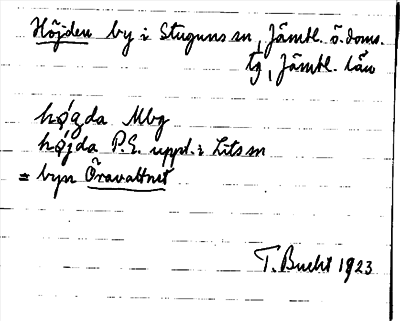 Höjden by i Stuguns sn, Jämtl. ö. doms.
tg, Jämtl. län
hǿgda Mbg
hǿjda P.E. uppt. i Lits sn
= byn Öravattnet
T. Bucht 1923